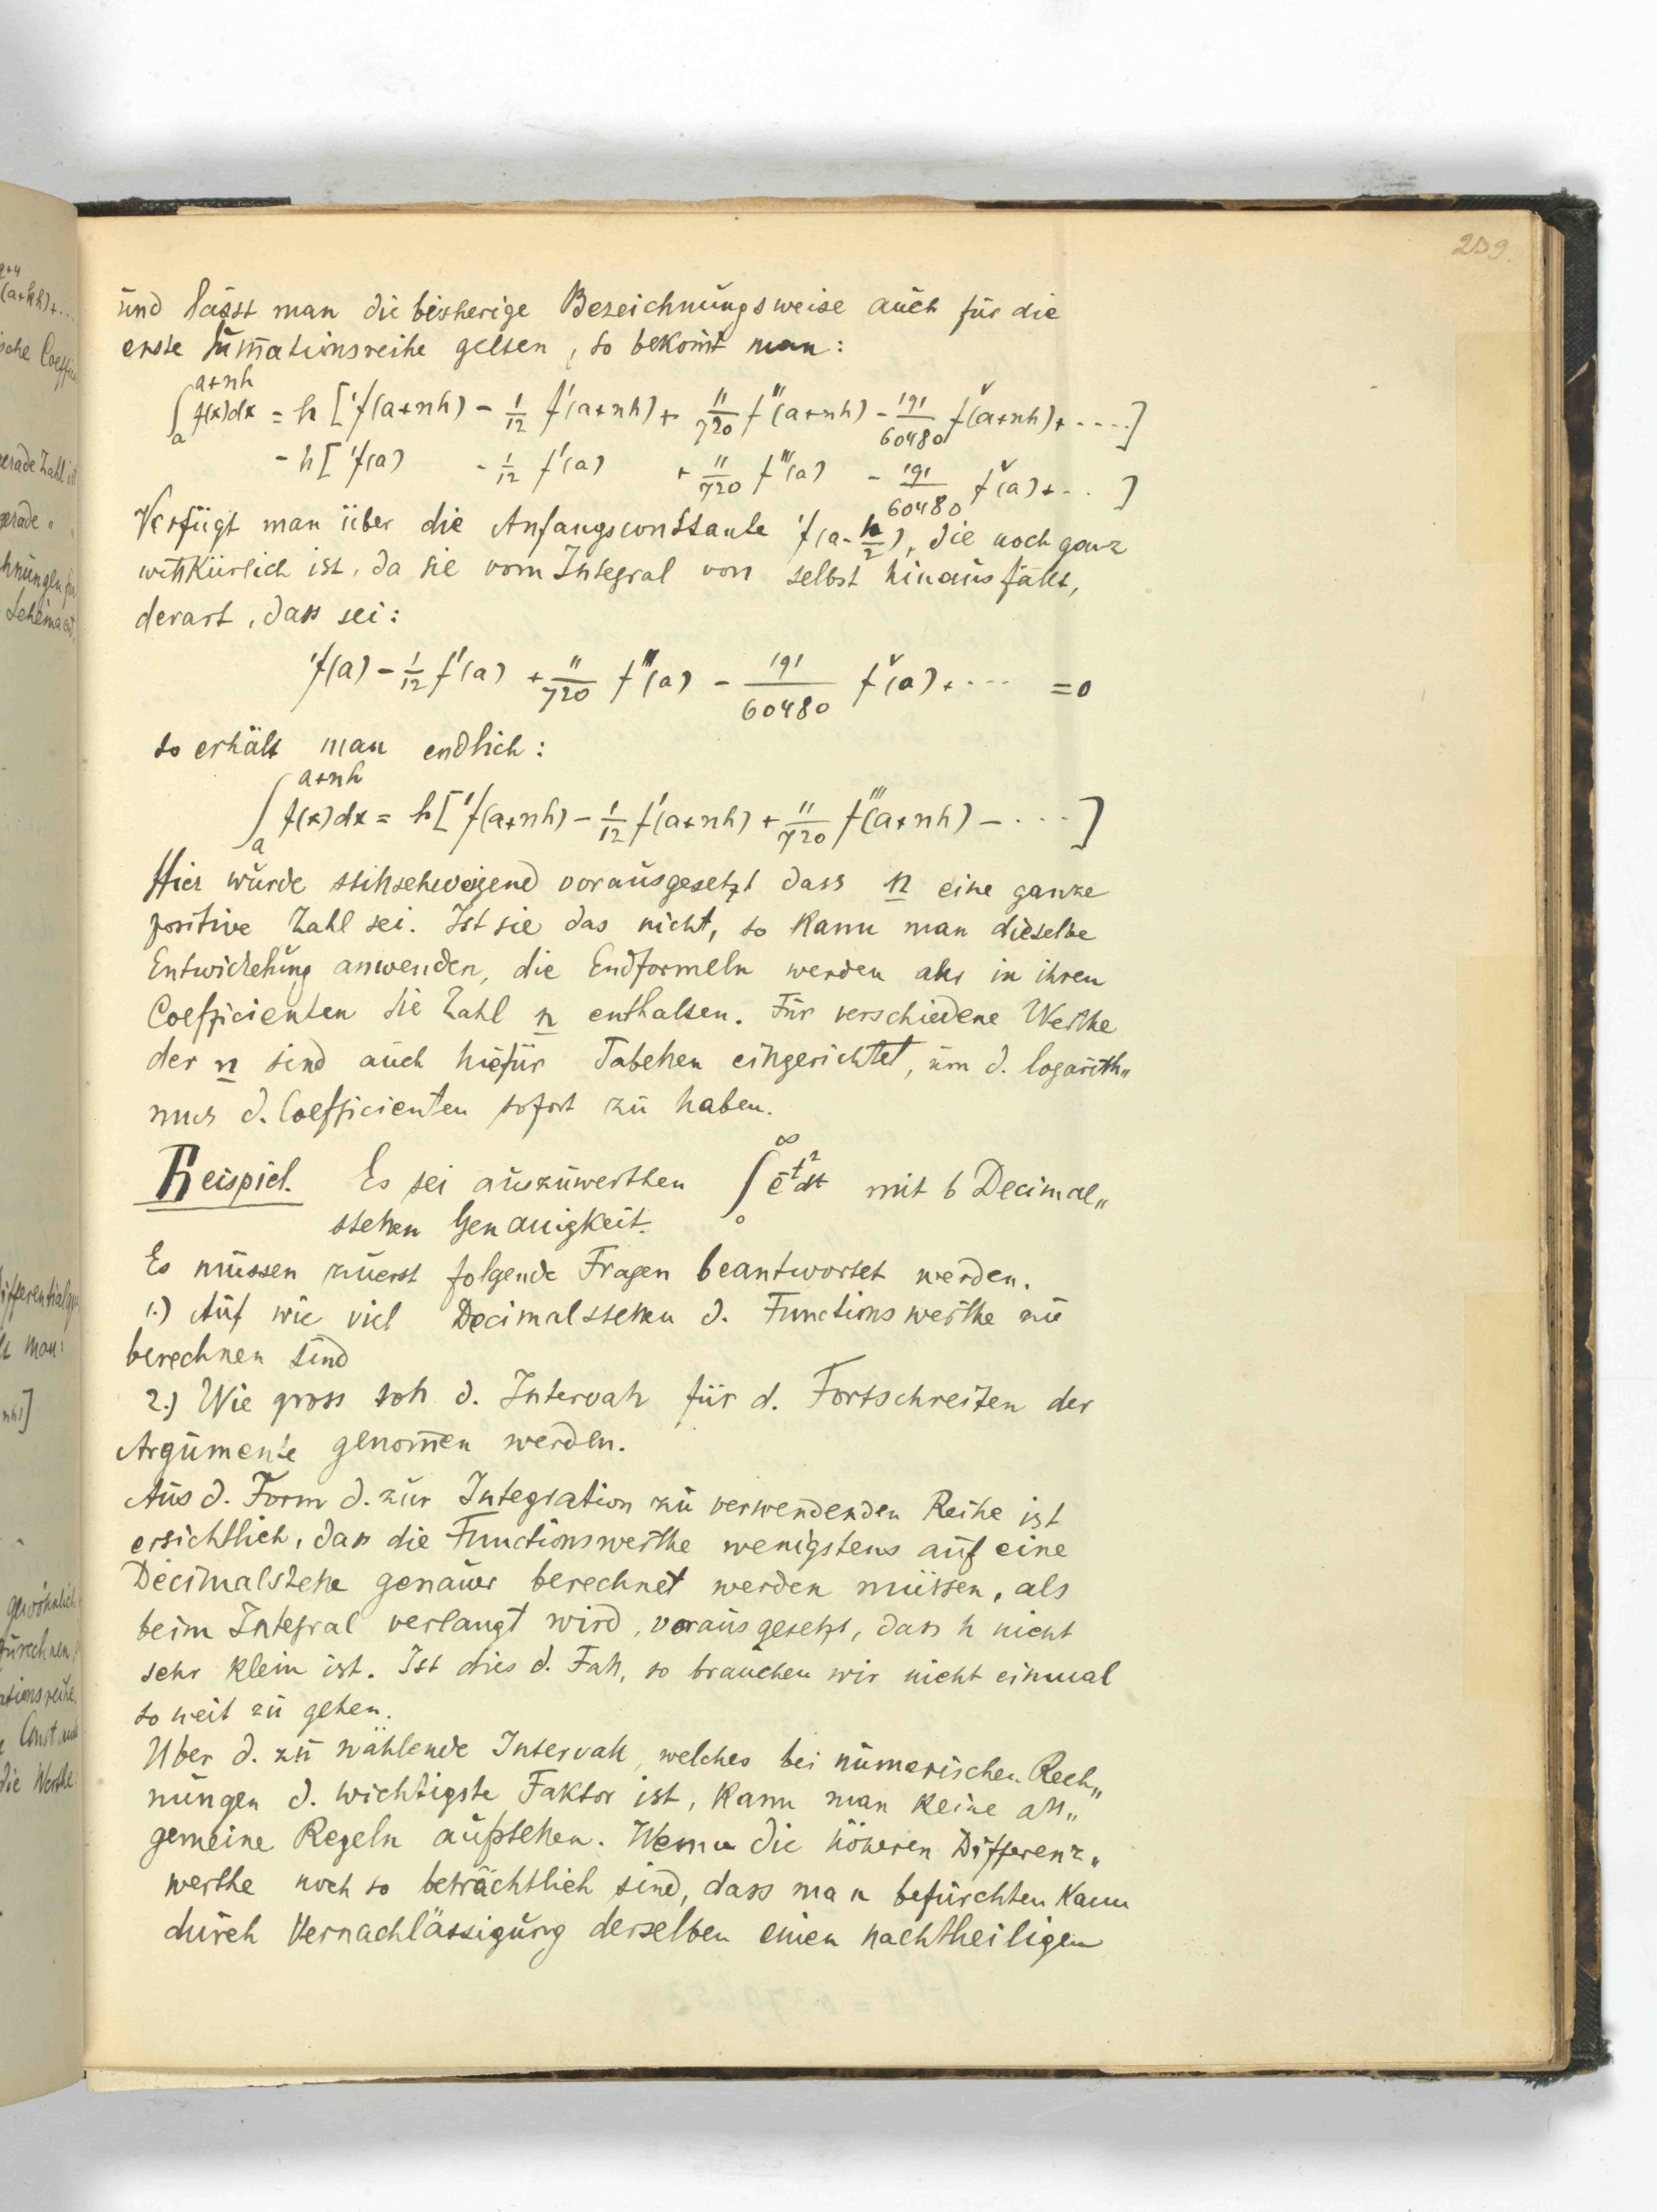 239.
und lässt man die bisherige Bezeichnungsweise auch für die
erste Sum̄ationsreihe gelten, so bekom̄t man:
∫ₐ^{a+nh} f(x)dx = h ['f(a+nh) - 1/12 f'(a+nh) + 11/720 f'''(a+nh) - 191/60480 f^v(a+nh) + ....]
- h ['f(a) - 1/12 f'(a) + 11/720 f'''(a) - 191/60480 f^v(a) + ... ]
Verfügt man über die Anfangsconstante 'f(a-h/2), die noch ganz
willkürlich ist, da sie vom Integral von selbst hinausfällt,
derart, dass sei:
'f(a) - 1/12 f'(a) + 11/720 f'''(a) - 191/60480 f^v(a) + ... = 0
so erhält man endlich:
∫ₐ^{a+nh} f(x)dx = h ['f(a+nh) - 1/12 f'(a+nh) + 11/720 f'''(a+nh) - .... ]
Hier wurde stillschweigend vorausgesetzt dass n eine ganze
positive Zahl sei. Ist sie das nicht, so kann man dieselbe
Entwickelung anwenden, die Endformeln werden aber in ihren
Coefficienten die Zahl n enthalten. Für verschiedene Werthe
der n sind auch hiefür Tabellen eingerichtet, um d. logarith„
mus d. Coefficienten sofort zu haben.
Beispiel. Es sei auszuwerthen ∫₀^∞ e^{-t²}dt mit 6 Decimal„
stellen Genauigkeit.
Es müssen zuerst folgende Fragen beantwortet werden.
1.) Auf wie viel Decimalstellen d. Functionswerthe zu
berechnen sind
2.) Wie gross soll d. Intervall für d. Fortschreiten der
Argumente genom̄en werden.
Aus d. Form d. zur Integration zu verwendenden Reihe ist
ersichtlich, dass die Functionswerthe wenigstens auf eine
Decimalstelle genauer berechnet werden müssen, als
beim Integral verlangt wird, vorausgesetzt, dass h nicht
sehr klein ist. Ist dies d. Fall, so brauchen wir nicht einmal
so weit zu gehen.
Über d. zu wählende Intervall, welches bei numerischen Rech„
nungen d. wichtigste Faktor ist, kann man keine all„
gemeine Regeln aufstellen. Wenn die höheren Differenz„
werthe noch so beträchtlich sind, dass man befürchten kann
durch Vernachlässigung derselben einen nachtheiligen